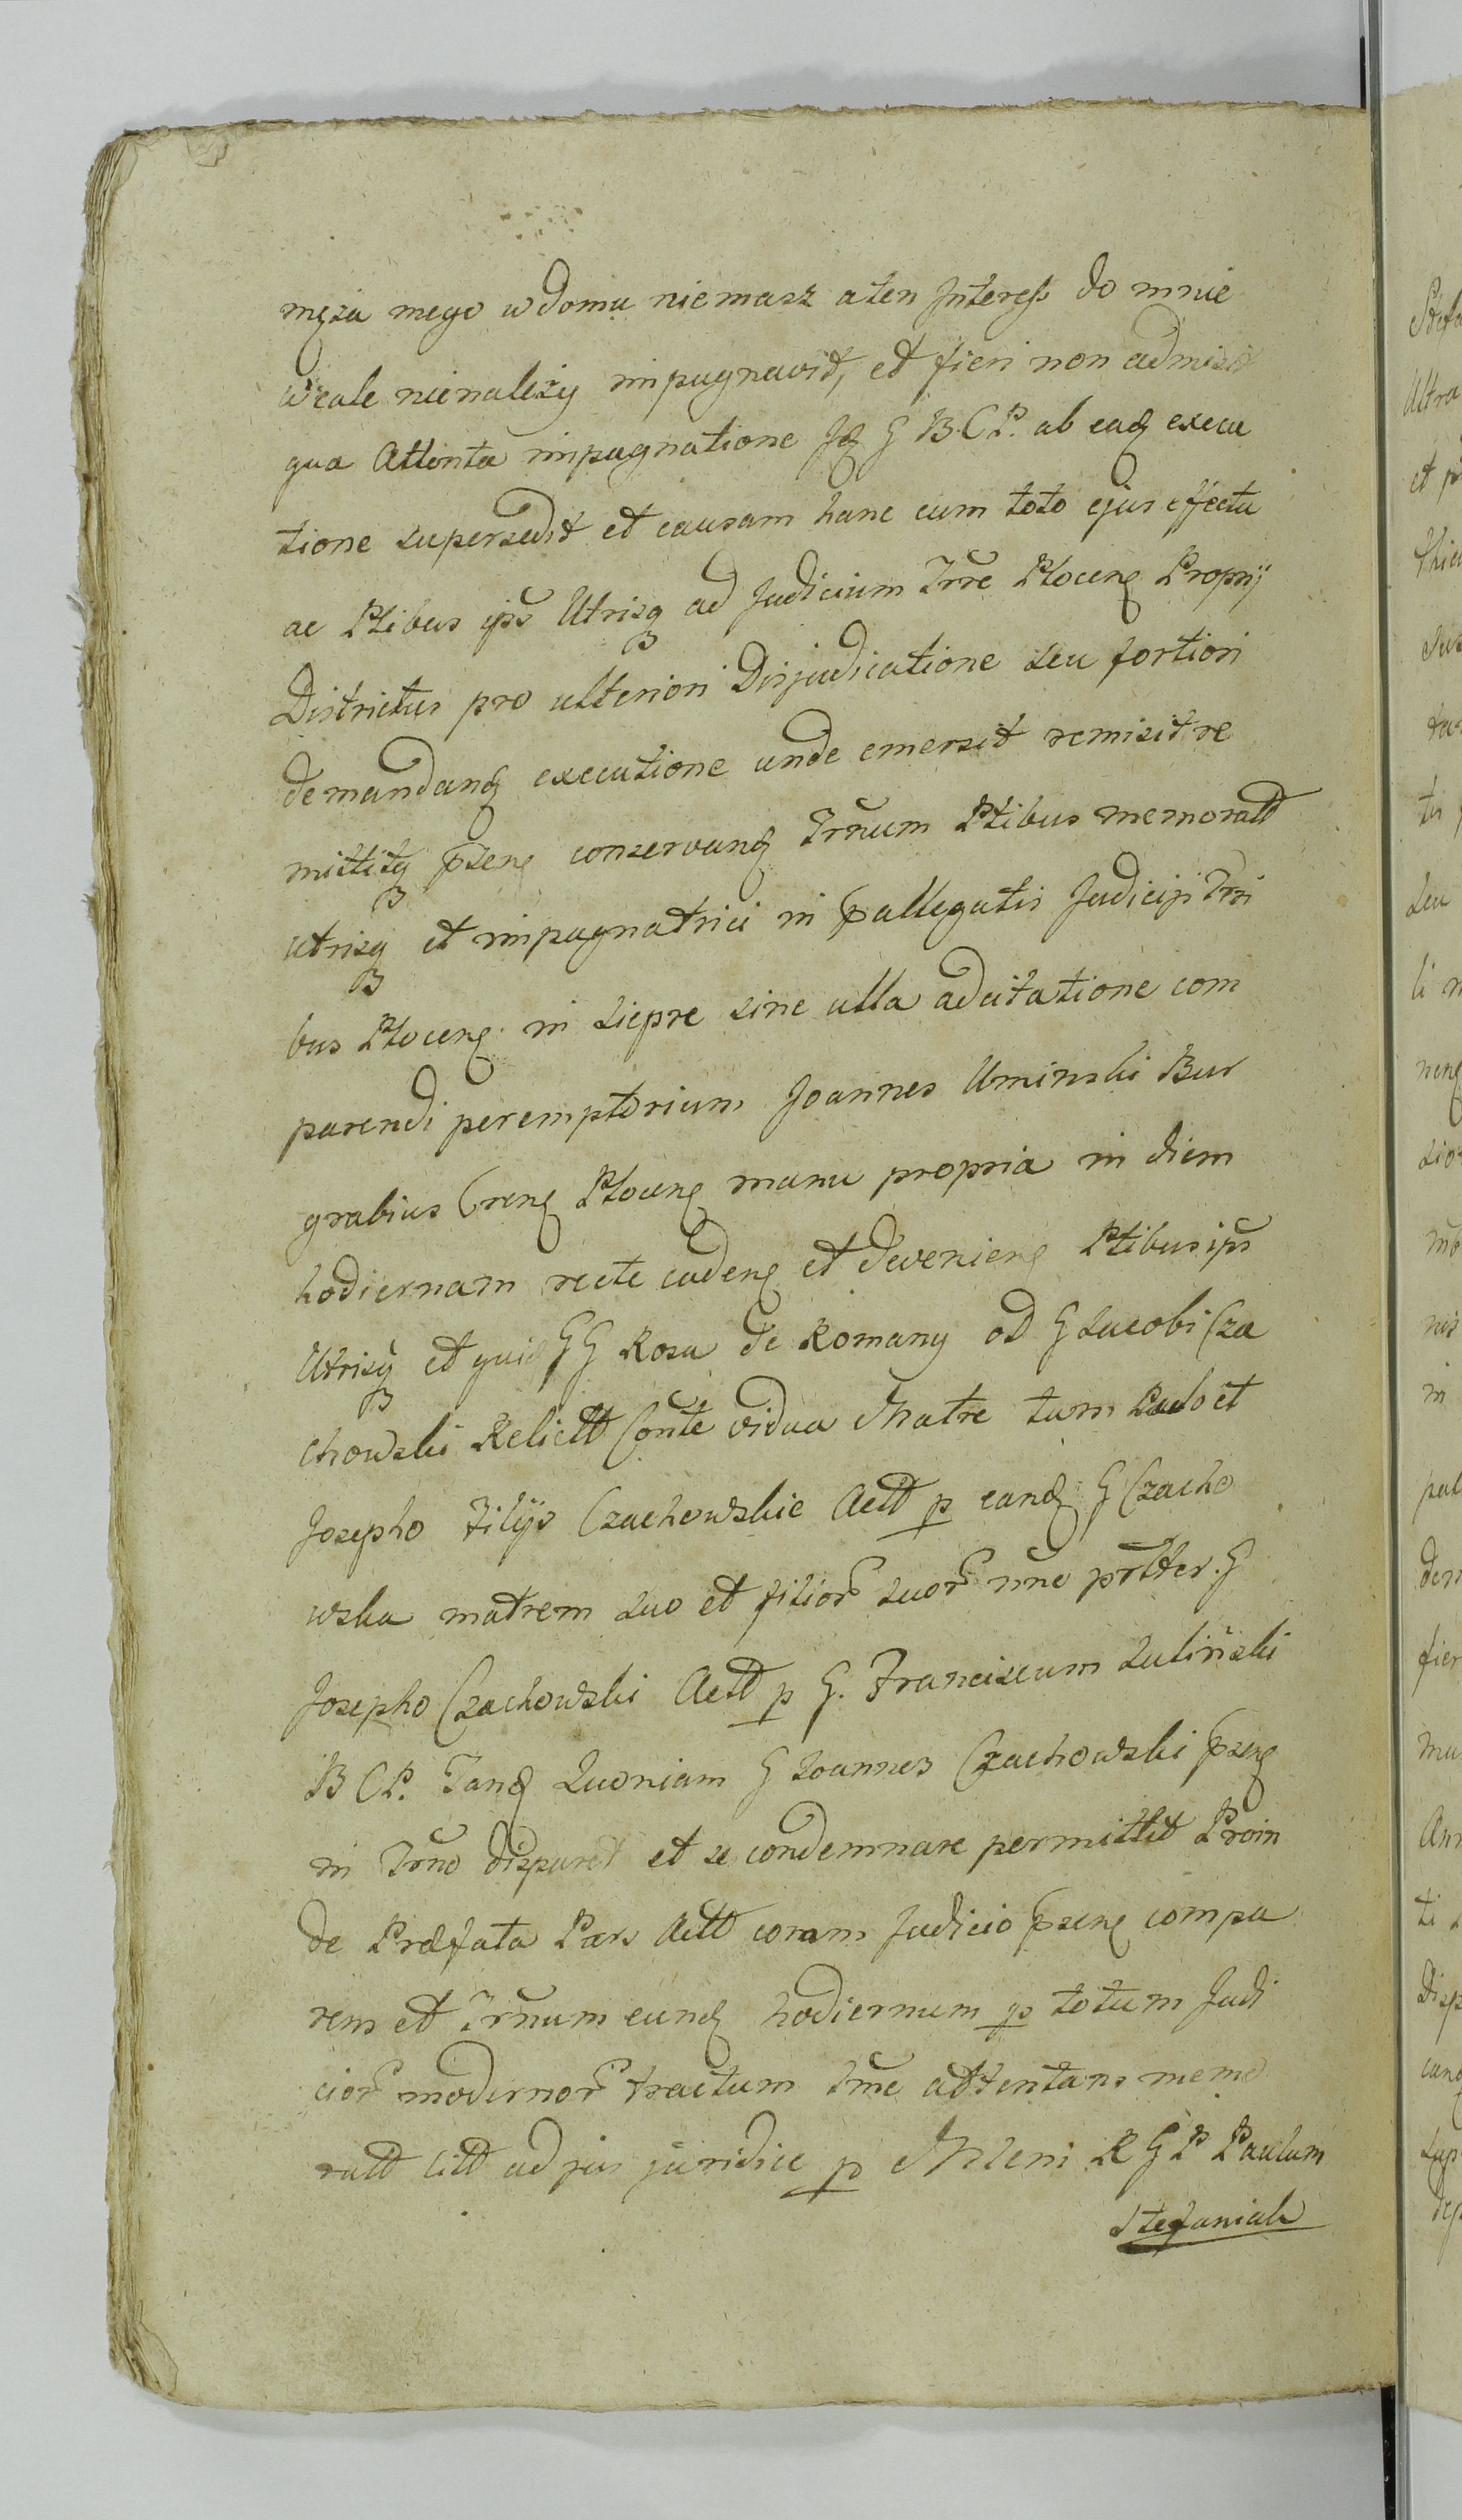 męża mego w domu niemasz a ten Interess do mnie
wcale nienależy impugnavit, et fieri non admisit
qua Attenta impugnatione Jd G B. C P. ab ead execu
tione supersedit et causam hanc cum toto ejus effectu
ac Ptibus ips Utrisq ad Judicium Trre Plocens Proprij
Districtus pro ulteriori Disjudicatione seu fortiori
demandand executione unde emersit remisit re
mittitq psens conservand Trnum Ptibus memoratt
utrisq et impugnatrici in pallegatis Judicijs Trri
bus Plocens in Siepre sine ulla adcitatione com
parendi peremptorium Joannes Uminski Bur
grabius Crens Plocens manu propria in diem
hodiernam recte cadens et deveniens Ptibus ips
Utrisq et quid G G Rosa de Romany od G Jacobi Cza
chowski Relictt Conte vidua Matre tum Paulo et
Josepho Filijs Czachowskie Actt p eand G Czacho
wska matrem suo et filior suor nne prtter. G
Josepho Czachowski Actt p G. Franciscum Lubiński
B C P. Tand Quoniam G Joannes Czachowski psens
in Trno disparet et se condemnare permittit Proin
de Præfata Pars Actt coram Judicio psens compa
rens et Trnum eund hodiernum p totum Judi
cior modernor tractum tme attentans memo
ratt Citt ad jus juridice p Mleni R G P Paulum
Stefaniak